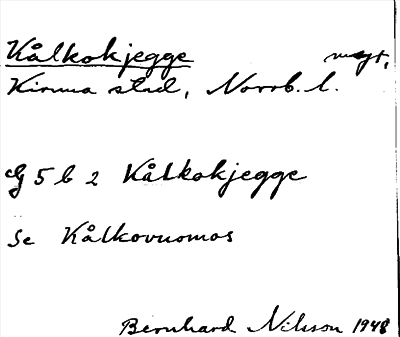 Kålkokjegge myr,
Kiruna stad, Norrb. l.
G 5 b 2 Kålkokjegge
Se Kålkovuomos
Bernhard Nilsson 1948